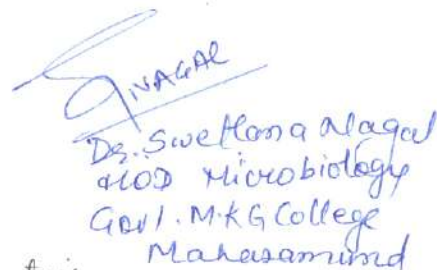 NAGAL
Dr. Swetlana Nagal
HOD Microbiology
Govt. M.K G College
Mahasamund